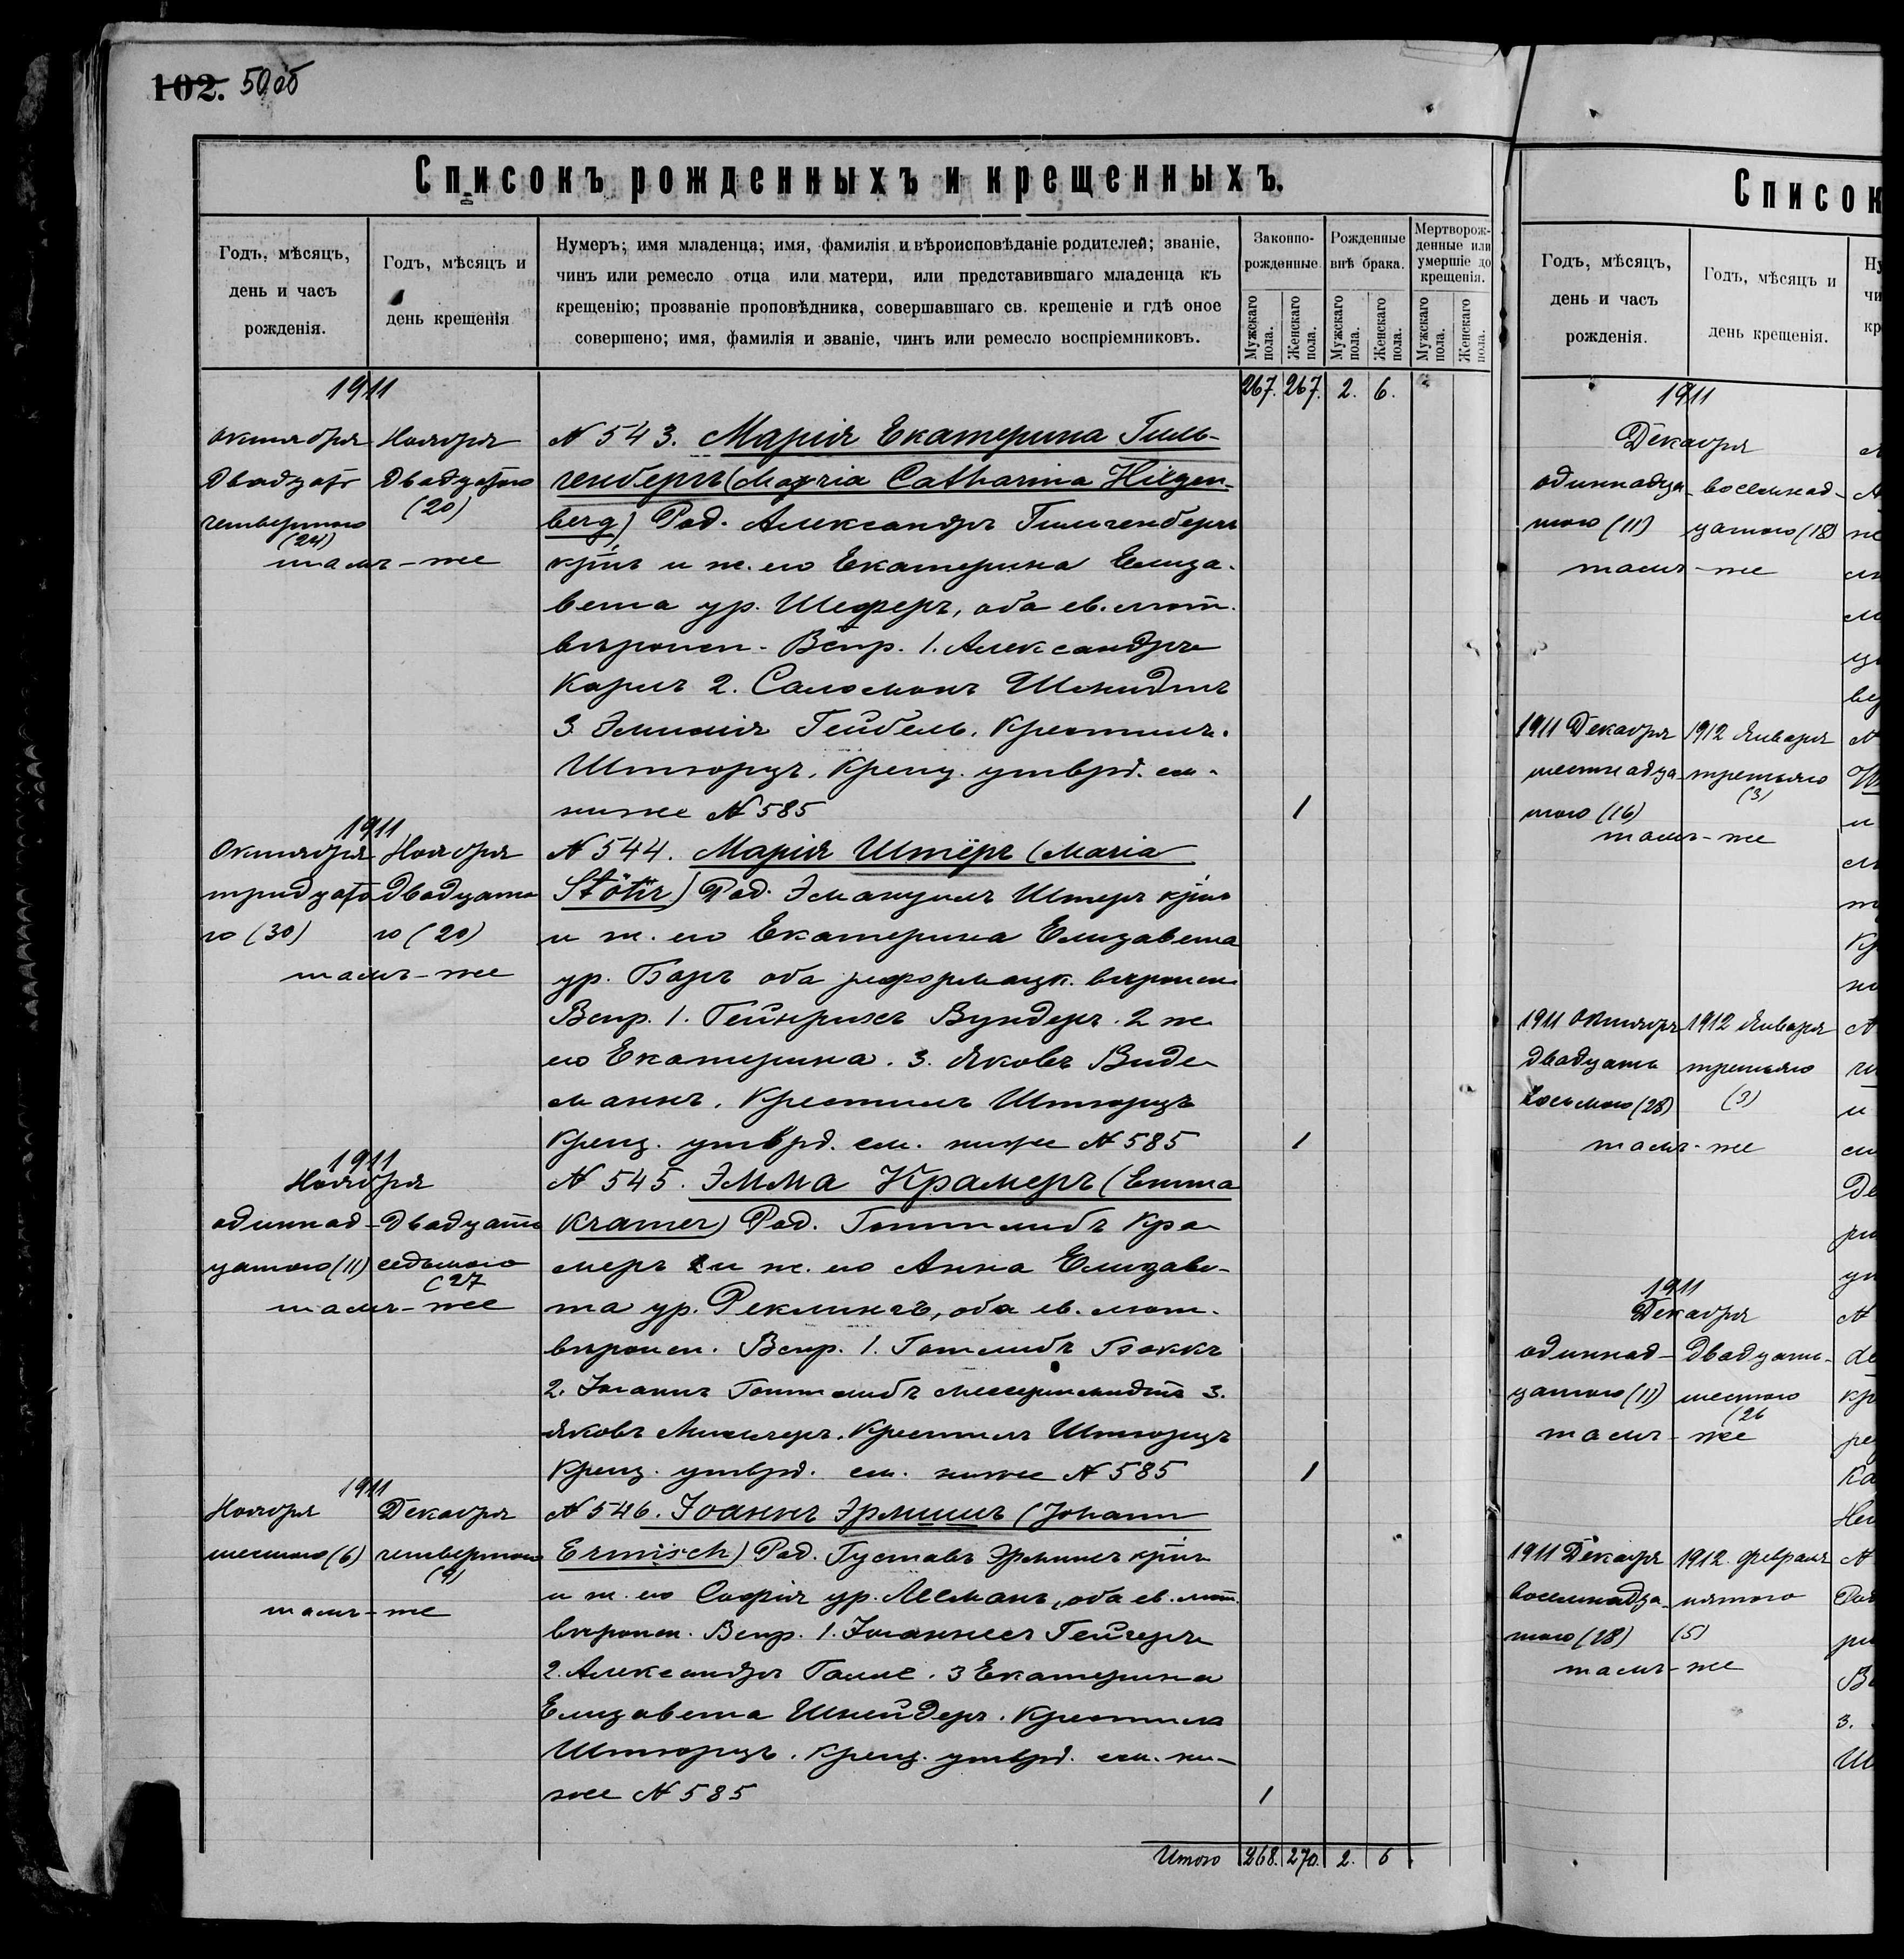 102. 50об
Списокъ рожденныхъ и крещенныхъ.
Годъ, мѣсяцъ,
день и часъ
рожденія.
Годъ, мѣсяцъ и
день крещенія
Нумеръ; имя младенца; имя, фамилія и вѣроисповѣданіе родителей; званіе,
чинъ или ремесло отца или матери, или представившаго младенца къ
крещенію; прозваніе проповѣдника, совершавшаго св. крещеніе и гдѣ оное
совершено; имя, фамилія и званіе, чинъ или ремесло воспріемниковъ.
Законно-
рожденные
Рожденные
внѣ брака.
Мертворож-
денные или
умершіе до
крещенія.
Мужскаго пола.
Женскаго пола.
Мужскаго пола.
Женскаго пола.
Мужскаго пола.
Женскаго пола.
267. 267. 2. 6.
1911
Октября
Двадцать
четвертого
(24)
Ноября
Двадцатого
(20)
тамъ-же
N 543. Марія Екатерина Гиль-
генбергъ (Maria Catharina Hilgen-
berg) Род. Александръ Гильгенбергъ
крнъ и ж. его Екатерина Елиза-
вета ур. Шеферъ, оба ев. лют.
вѣроисп. Вспр. 1. Александръ
Карлъ 2. Саломонъ Шмидтъ
3. Эмилія Гейбель. Крестилъ
Штторцъ. Крещ. утврд. см.
ниже N 585
1
1911
Октября
тридцато
го (30)
Ноября
Двадцато
го (20)
тамъ-же
N 544. Марія Штёръ (Maria
Stöhr) Род. Эмануилъ Штеръ крнъ
и ж. его Екатерина Елизавета
ур. Баръ оба реформатск. вѣроисп.
Вспр. 1. Гейнрихъ Вундеръ. 2 ж.
его Екатерина. 3. Яковъ Виде
манъ. Крестилъ Штторцъ
Крещ. утврд. см. ниже N 585
1
1911
Ноября
одиннад-
цатого (11)
Двадцать
седьмого
(27
тамъ-же
N 545. Эмма Крамеръ (Emma
Kramer) Род. Готтлибъ Кра
меръ и ж. его Анна Елизаве-
та ур. Реклингъ, оба ев. лют.
вѣроисп. Вспр. 1. Готлибъ Боккъ
2. Іоганъ Готтлибъ Мессершмидтъ 3.
Яковъ Мильгеръ. Крестилъ Штторцъ
Крещ. утврд. см. ниже N 585
1
1911
Ноября
шестого (6)
Декабря
четвертого
(4)
тамъ-же
N 546. Іоаннъ Эрмишъ (Johann
Ermisch) Род. Густавъ Эрмишъ крнъ
и ж. его Софія ур. Леманъ, оба ев. лют.
вѣроисп. Вспр. 1. Іоганнесъ Гейгеръ
2. Александръ Галле. 3 Екатерина
Елизавета Шнейдеръ. Крестилъ
Штторцъ. Крещ. утврд. см. ни-
же N 585
1
Итого 268. 270. 2. 6.
Список
Годъ, мѣсяцъ,
день и часъ
рожденія.
Годъ, мѣсяцъ и
день крещенія.
Ну
чи
кр
1911
Декабря
одиннадца
того (11)
восемнад-
цатого (18)
тамъ-же
1911 Декабря
шестнадца-
того (16)
1912 Января
третьяго
(3)
тамъ-же
1911 Октября
двадцать
восьмого (28)
1912 Января
третьяго
(3)
тамъ-же
1911
Декабря
одиннад-
цатого (11)
Двадцать-
шестого
(26
тамъ-же
1911 Декабря
восемнадца-
того (28)
1912. Февраля
пятого
(5)
тамъ-же